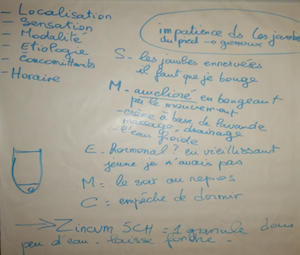 - Localisation
- Sensation
- Modalité
- Etiologie
- concomittants
- Horaire
impatience ds les jambes
du pied → genoux
S. les jambes énervées
il faut que je bouge
M - amélioré en bougeant
par le mouvement
- crème à base de lavande
massage, drainage
- l'eau froide
E. Hormonal? en vieillissant
jeune je n'avais pas
M = le soir au repos
C = empêche de dormir
→ Zincum 5CH = 1 granule dans
peu d'eau. laisse fondre.